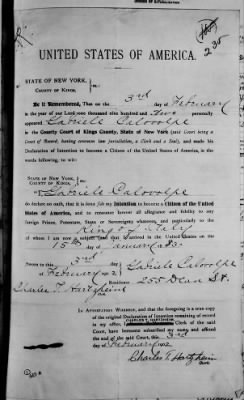 235
UNITED STATES OF AMERICA.
STATE OF NEW YORK,
COUNTY OF KINGS,
Be it Remembered, That on the 3rd day of February
in the year of our Lord one thousand nine hundred and two personally
appeared Gabriele Calovolpe
in the County Court of Kings County, State of New York (said Court being a
Court of Record, having common law jurisdiction, a Clerk and a Seal), and made his
Declaration of Intention to become a Citizen of the United States of America, in the
words following, to wit:
STATE OF NEW YORK,
COUNTY OF KINGS,
I, Gabriele Calovolpe
do declare on oath, that it is bona fide my Intention to become a Citizen of the United
States of America, and to renounce forever all allegiance and fidelity to any
foreign Prince, Potentate, State or Sovereignty whatever, and particularly to the
King of Italy
of whom I am now a subject (and that I arrived in the United States on the
15th day of January
Sworn to this 3rd
of February 1902 Gabriele Calovolpe
Charles T. Hartzheim Residence 255 Dean St.
IN ATTESTATION WHEREOF, and that the foregoing is a true copy
of the original Declaration of Intention remaining of record
in my office, I, CHARLES T. HARTZHEIM Clerk of the said
Court, have hereunto subscribed my name and affixed
the seal of the said Court, this 3rd
day of February 1902
Charles T. Hartzheim
Clerk.